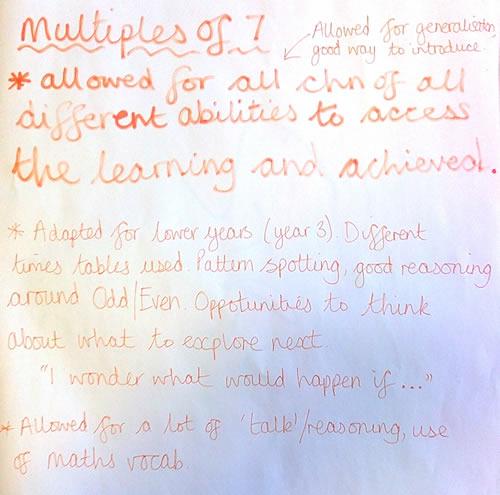 Multiples of 7
Allowed for generalisation,
good way to introduce.
* allowed for all chn of all
different abilities to access
the learning and achieved.
* Adapted for lower years (year 3). Different
times tables used. Pattern spotting, good reasoning
around Odd/Even. Oppotunities to think
about what to explore next.
"I wonder what would happen if ..."
* Allowed for a lot of 'talk'/reasoning, use
of maths vocab.